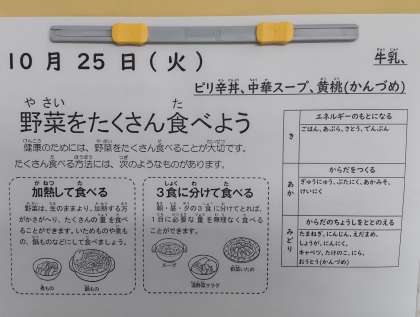 10月25日(火)
牛乳、
ピリ辛丼、中華スープ、黄桃(かんづめ)
野菜をたくさん食べよう
健康のためには、野菜をたくさん食べることが大切です。
たくさん食べる方法には、次のようなものがあります。
加熱して食べる
野菜は、生のままより、加熱する方
がかさがへり、たくさんの量を食べ
ることができます。いためものや煮も
の、鍋ものなどにして食べましょう。
煮もの
鍋もの
3食に分けて食べる
朝・昼・夕の3食に分けてとれば、
1日に必要な量を無理なく食べる
ことができます。
スープ
温野菜サラダ
野菜いため
エネルギーのもとになる
き
ごはん、あぶら、さとう、でんぷん
からだをつくる
あか
ぎゅうにゅう、ぶたにく、あかみそ、
けいにく
からだのちょうしをととのえる
みどり
たまねぎ、にんじん、えだまめ、
しょうが、にんにく、
キャベツ、たけのこ、にら、
おうとう(かんづめ)